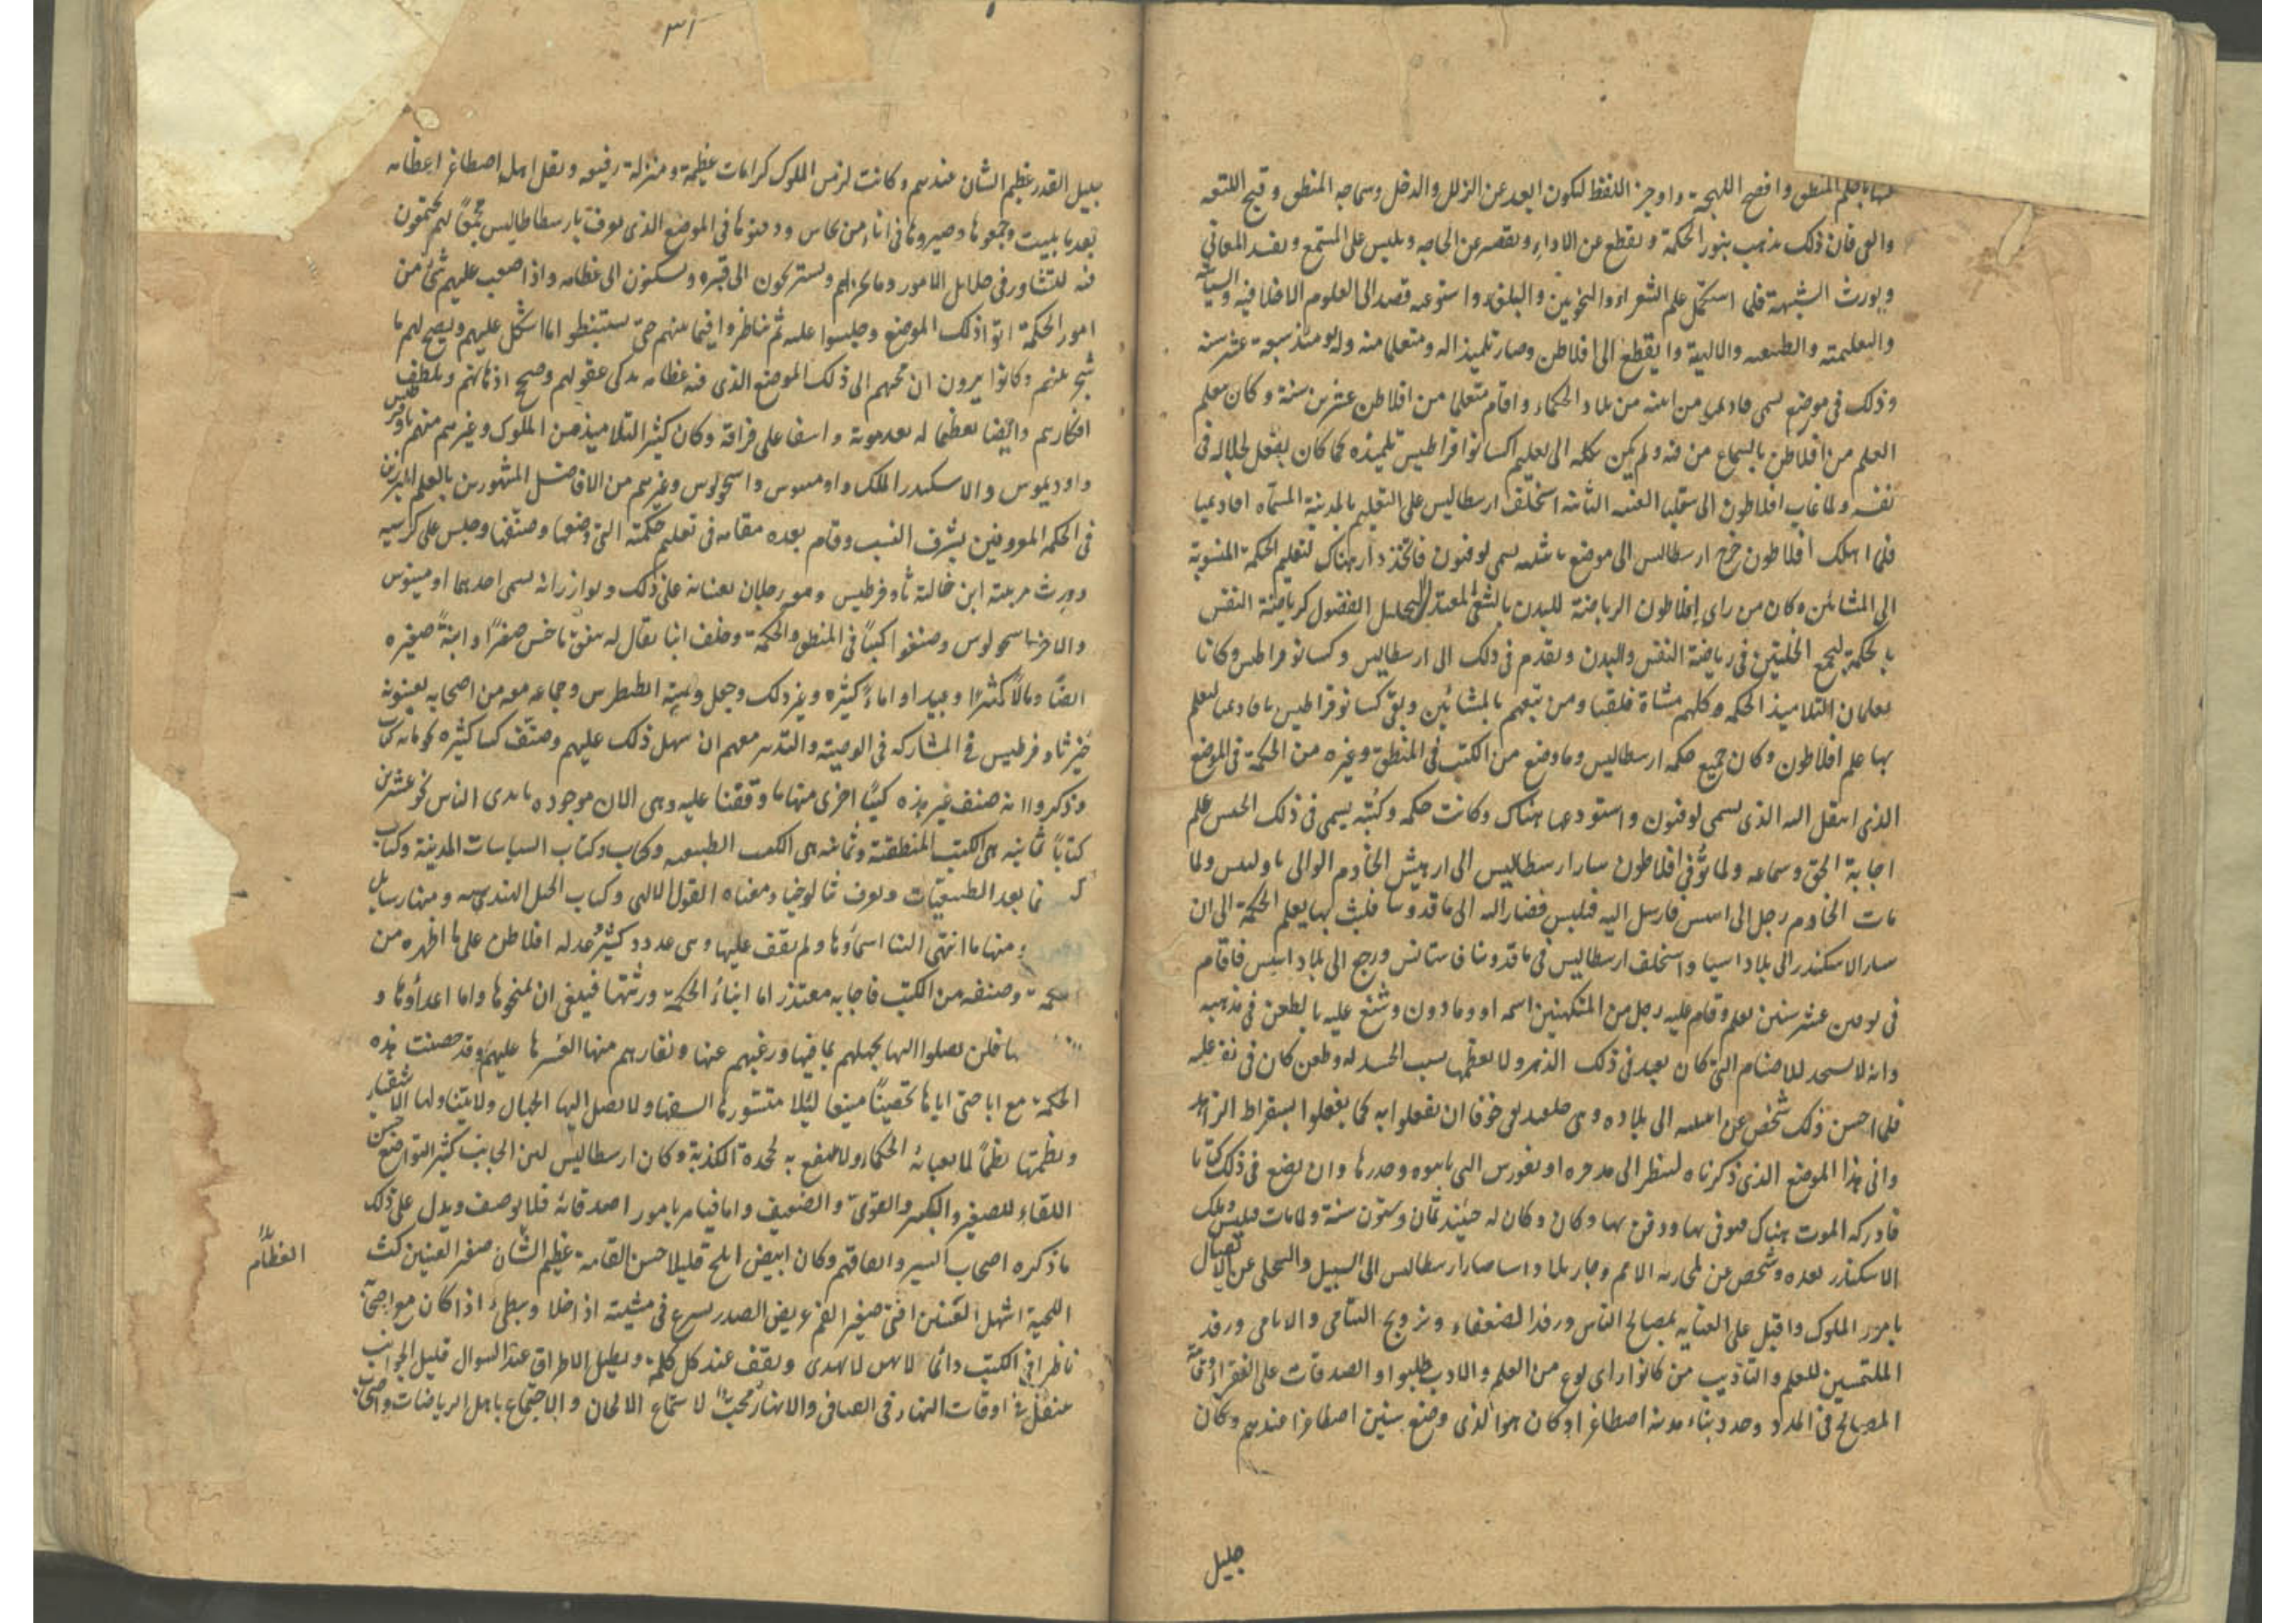 عنها بابلغ المنطق وافصح اللهجة واوجز اللفظ ليكون ابعد عن الزلل والدخل وسماجه المنطق وقبح اللثغه
والعى فان ذلك يذهب بنور الحكمة ويقطع عن الاداء ويقصر عن الحاجه ويلبس على المستمع ويفسد المعانى
ويورث الشبهة فلما استكمل علم الشعراء والنحويين والبلغاء واستوعبه قصد الى العلوم الاخلاقيه والسياسية
والتعليمية والطبيعيه والالهية وانقطع الى افلاطن وصار تلميذا له ومتعلما منه وله يومئذ سبعة عشر سنه
وذلك فى موضع يسمى من بلاد الحكماء واقام متعلما من افلاطن عشرين سنة وكان معلم
العلم من افلاطن بالسماع من فيه ولم يكن يكله الى تعليم اكسانوقراطيس تلميذه كما كان يفعل لجلاله فى
نفسه ولما غاب افلاطون الى سقليا الغيبه الثانيه استخلف ارسطاليس على التعليم بالمدينة المسماه اقاديميا
فلما اهلك افلاطون خرج ارسطاليس الى موضع يسمى لوفنون فاتخذ دار هناك لتعليم الحكمة المنسوبة
الى المشائين وكان من راى افلاطون الرياضة للبدن بالسعى المعتدل لتحليل الفضول كرياضة النفس
بالحكمة ليجمع الخلتين فى رياضة النفس والبدن وتقدم فى ذلك الى ارسطاليس وكسانوقراطيس وكانا
يعلمان التلاميذ الحكمه وكلهم مشاة فلقبا ومن تبعهم بالمشائين وبقى كسانوقراطيس باقاديميا ليعلم
بها علم افلاطون وكان جميع حكمه ارسطاليس وما وضع من الكتب فى المنطق وغيره من الحكمة فى الموضع
الذى انتقل اليه الذى يسمى لوفنون واستودعها هناك وكانت حكمه وكتبه يسمى فى ذلك علم
اجابة الحق وسماعه ولما توفى افلاطون سار ارسطاليس الى ارهيس الخادم الوالى ولما
مات الخادم رجل الى فارسل اليه فيلبس فصار اليه الى ماقدونيا فلبث بها يعلم الحكمة الى ان
سار الاسكندر الى بلاد اسيا واستخلف ارسطاليس فى ماقدونيا ورجع الى بلاد اسس فاقام
فى عشر سنين يعلم وقام عليه رجل من المتكهنين اسمه وشنع عليه بالطعن فى مذهبه
وانه لا يسجد للاصنام التى كان يعبد فى ذلك الدهر ولا يعظمها بسبب الحسد له وطعن كان فى نفسه عليه
فلما احسن ذلك شخص عن الى بلاده وهى خوفا ان يفعلوا به كما يفعلوا بسقراط الزاهد
وانى هذا الموضع الذى ذكرناه لينظر الى ومدرها وان يضع فى ذلك كتابا
فادركه الموت هناك فتوفى بها ودفن بها وكان وكان له حينئذ ثمان وستون سنة ولما مات فيلبس وملك
الاسكندر بعده وشخص عن لمحاربه الامم وجاز بلاد اسيا صار ارسطاليس الى السبيل والتخلى عن الاتصال
بامور الملوك واقبل على العنايه بمصالح الناس ورفد الضعفاء وتزويج اليتامى والايامى ورفد
الملتمسين للعلم والتاديب من كانوا واى نوع من العلم والادب طلبوا والصدقات على الفقراء واقامة
المصالح فى المدن وجدد بناء مدينه اصطاغيرا وكان هو الذى وضع سنين اصطاغرا عندهم وكان
جليل
٣١
جليل القدر عظيم الشان عندهم وكانت له من الملوك كرامات عظيمة ومنزلة رفيعه ونقل اهله اصطاغر اعظامه
بعد ما بليت وجمعوها وصيروها فى اناء من نحاس ودفنوها فى الموضع الذى يعرف بارسطاطاليس مجمعا لهم يجتمعون
فيه للتشاور فى جلايل الامور وما يحزنهم ويستريحون الى قبره ويسكنون الى عظامه واذا صعب عليهم شئ من
امور الحكمة اتوا ذلك الموضع وجلسوا عليه ثم تناظروا فيما بينهم حتى يستنبطوا ما اشكل عليهم ويصح لهم ما
شجر بينهم وكانوا يرون ان مجيئهم الى ذلك الموضع الذى فيه عظامه يذكى عقولهم وصحح اذهانهم ويلطف
افكارهم وايضا تعظيما له بعد موته واسفا على فراقه وكان كثير التلاميذ من الملوك وغيرهم منهم ثاوفرطيس
واوديموس والاسكندر الملك واومينوس واسخولوس وغيرهم من الافاضل المشهورين بالعلم المبرزين
فى الحكمه المعروفين بشرف النسب وقام بعده مقامه فى تعليم حكمته التى وضعها وصنفها وجلس على كرسيه
وورث مرتبته ابن خالته ثاوفرطيس ومعه رجلان يعينانه على ذلك ويوازرانه يسمى احدهما اومينوس
والاخر اسخولوس وصنفوا كتبا فى المنطق والحكمة وخلف ابنا يقال له صغيرا وابنة صغيره
ايضا ومالا كثيرا وعبيدا واماء كثيره وغير ذلك وجعل وصيته انطبطرس وجماعه معه من اصحابه يعينونه
خير ثاوفرطيس فى المشاركه فى الوصيه والتدبير معهم ان سهل ذلك عليهم وصنف كتبا كثيره نحو مايه كتاب
وذكروا انه صنف غير هذه كتبا اخرى منها ما وقفنا عليه وهى الان موجوده بايدى الناس نحو عشرين
كتابا ثمانيه هى الكتب المنطقية وثمانيه هى الكتب الطبيعيه وكتاب وكتاب السياسات المدينة وكتاب
ما بعد الطبيعيات ويعرف ثالوجيا ومعناه القول الالهى وكتاب الحيل الهندسيه ومنها رسايل
ومنها ما انتهى الينا اسماؤها ولم يقف عليها وهى عدد كثير وعذله افلاطن على ما اظهره من
الحكمة وصنفه من الكتب فاجابه معتذرا اما ابناء الحكمة ورثتها فينبغى ان لمنحوها واما اعداؤها و
فلن يصلوا اليها بجهلهم بما فيها ورغبتهم عنها ونفارهم منها لعسرها عليهم وقد حصنت هذه
الحكمة مع اباحتى اياها تحصينا منيعا لئلا يتسورها السفها ولا يصل اليها الجهال ولا يتناولها الاشقياء
ونظمتها نظما لا يعبا به الحكماء ولا ينتفع به الكذبة وكان ارسطاليس لين الجانب كثير التواضع حسن
اللقاء للصغير والكبير والقوى والضعيف واما قيامه بامور اصدقائه فلا يوصف ويدل على ذلك
ما ذكره اصحاب السير واتفاقهم وكان ابيض ابلج قليلا حسن القامة عظيم الشان صغير العينين كث
العظام
اللحية اشهل العينين اقنى صغير الفم عريض الصدر يسرع فى مشيته اذا خلا ويبطئ اذا كان مع اصحابه
ناظرا فى الكتب دائما لا يهدى ويقف عند كل كلمة ويطيل الاطراق عند السوال قليل الجواب
اوقات النهار فى الفيافى والانهار محبا لاستماع الالحان والاجتماع باهل الرياضات واصحاب